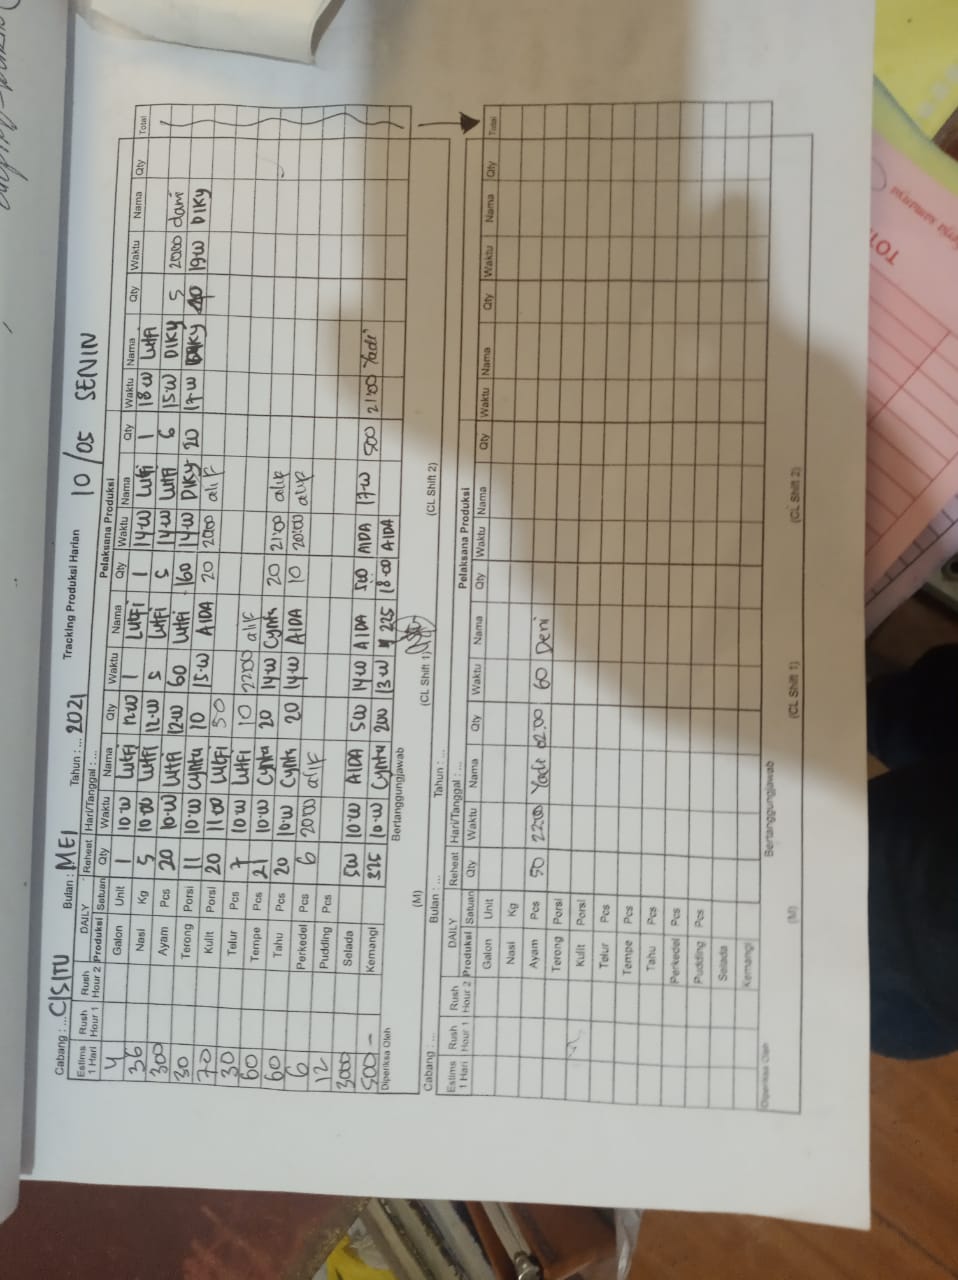 Cabang : ... CISITU Bulan : MEI Tahun : ... 2021 Tracking Produksi Harian 10/05 SENIN
Estims 1 Hari Rush Hour 1 Rush Hour 2 DAILY Produksi Satuan Reheat Hari/Tanggal : ... Pelaksana Produksi
Qty Waktu Nama Qty Waktu Nama Qty Waktu Nama Qty Waktu Nama Qty Waktu Nama Qty Total
4 Galon Unit 1 10.00 Lutfi 1 14.00 Lutfi 1 18.00 Lutfi
36 Nasi Kg 5 10.00 Lutfi 5 Lutfi 5 14.00 Lutfi 6 15.00 DIKY 5 20:00 dani
300 Ayam Pcs 20 10.00 Lutfi 12.00 60 Lutfi 160 14.00 DIKY 20 17.00 19.00 DIKY
30 Terong Porsi 11 10.00 Cynta 10 15.00 AIDA 20 2000 alif
70 Kulit Porsi 20 11 00 Lutfi 50
30 Telur Pcs 7 10.00 Lutfi 10 2200 alif
60 Tempe Pcs 21 10.00 Cynta 20 14.00 Cynta 20 21:00 alif
60 Tahu Pcs 20 10.00 Cynta 20 14.00 AIDA 10 20:00 alif
6 Perkedel Pcs 6 2000 alif
12 Pudding Pcs
3000 Selada 500 10.00 AIDA 500 14.00 AIDA 500 AIDA 17.00 500 21:00 Yadi
500 - Kemangi 325 10.00 Cynta 200 13.00 225 18.00 AIDA
Diperiksa Oleh Bertanggungjawab
(M) (CL Shift 1) (CL Shift 2)
Cabang : ... Bulan : ... Tahun : ...
Estims 1 Hari Rush Hour 1 Rush Hour 2 DAILY Produksi Satuan Reheat Hari/Tanggal : ... Pelaksana Produksi
Qty Waktu Nama Qty Waktu Nama Qty Waktu Nama Qty Waktu Nama Qty Waktu Nama Qty Total
Galon Unit
Nasi Kg
Ayam Pcs 50 22:00 Yadi 02.00 60 Deni
Terong Porsi
Kulit Porsi
Telur Pcs
Tempe Pcs
Tahu Pcs
Perkedel Pcs
Pudding Pcs
Selada
Kemangi
Diperiksa Oleh Bertanggungjawab
(M) (CL Shift 1) (CL Shift 2)